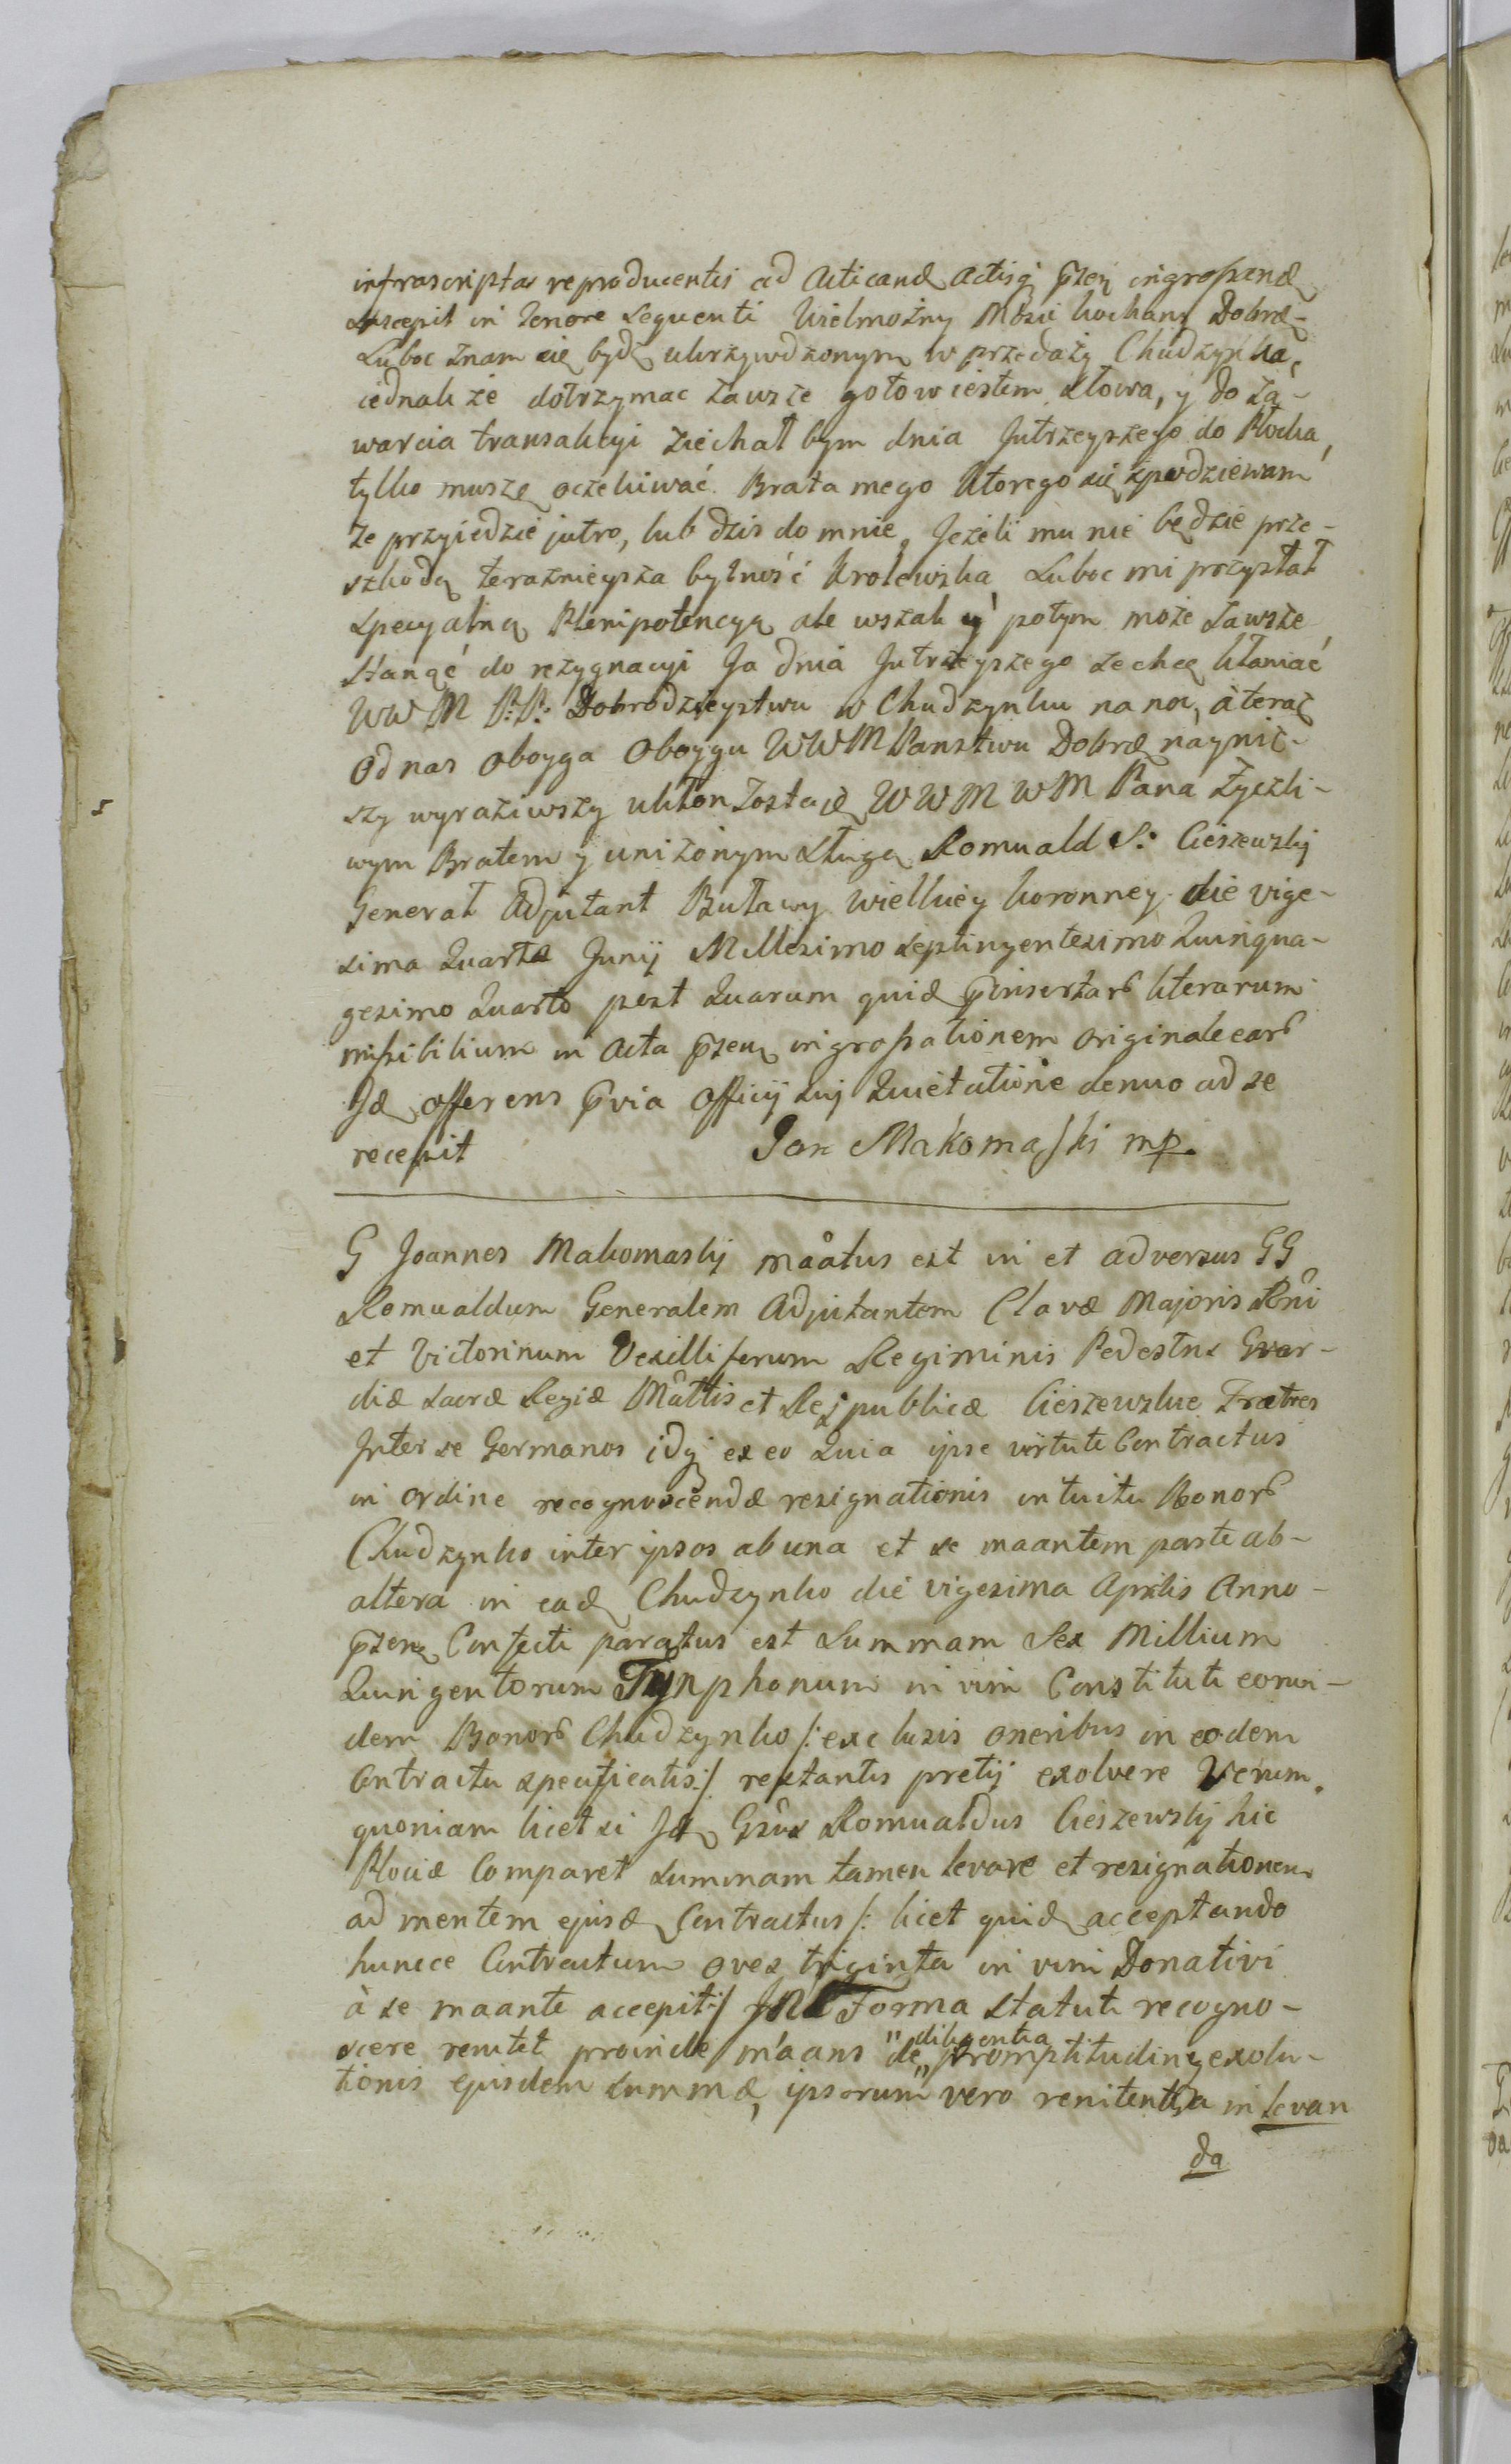 infrascriptas reproducentis ad Acticand Actisq pzen ingrossand
Suscepit in Tenore Sequenti Wielmożny Mosie kochany Dobrd-
Luboc znam się bydz ukrzywdzonym w przedaży Chudzynka,
iednak że dotrzymac zawsze gotow iestem słowa, y do za-
warcia transakcyi ziechał bym dnia Jutrzeyszego do Płocka,
tylko muszę oczekiwać Brata mego ktorego się spodziewam
ze przyiedzie jutro, lub dzis do mnie, Jeżeli mu nie będzie prze-
szkodą teraznieysza bytność krolewska, Luboc mi przysłał
specyalną Plenipotencyą ale wszak y potym może zawsze
stanąć do rezygnacyi Ja dnia Jutrzeyszego zechcę kłaniać
WWM P:P: Dobrodzieystwu w Chudzynku na noc, á teraz
Od nas oboyga Oboygu WWM Panstwu Dobrd nayniż-
szy wyraziwszy ukłon Zostaię WWM WM Pana życzli-
wym Bratem y uniżonym sługą Romuald S: Cieszewskij
Generał Adjutant Buławy wielkiey koronney die vige-
sima Quarta Junij Millesimo septingentesimo Quinqua-
gesimo Quarto post Quarum quid pinsertar literarum
missibilium in Acta pzen ingrossationem originale ear
Id offerens pvia Officij sui Quietatione denuo ad se
recepit Jan Makomaski mp.
G Joannes Makomaskij maatus est in et adversus GG
Romualdum Generalem Adjutantem Clavæ Majoris Rni
et Victorinum Vexilliferum Regiminis Pedestris Gvar-
diæ Sacræ Regiæ Mattis et Reipublicæ Cieszewskie Fratres
Inter se Germanos idq ex eo Quia ipse virtute Contractus
in ordine recognoscendæ resignationis intuitu Bonor
Chudzynko inter ipsos ab una et se maantem parte ab-
altera in ead Chudzynko die vigesima Aprilis Anno-
pzen Confecti paratus est Summam Sex Millium
Quingentorum Tynphonum in vim Constituti eorun-
dem Bonor Chudzynko /: exclusis oneribus in eodem
Contractu specificatis :/ restantis pretij exolvere Verum
quoniam licet si Id Gsus Romualdus Cieszewskij hic
Plociæ Comparet Summam tamen levare et resignationem
ad mentem ejusd Contractus /: licet quid acceptando
huncce Contractum oves triginta in vim Donativi
à se maante accepit :/ In Forma Statuti recogno-
scere renitet proinde maans de "diligentia" promptitudine exolu-
tionis ejusdem summæ, ipsorum vero renitentia in levan
da